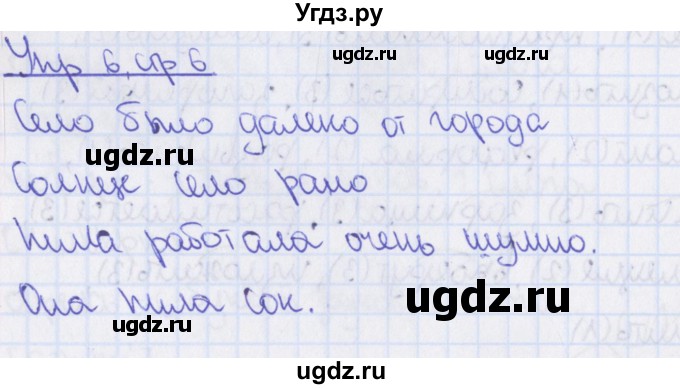 Угдз.ру
Упр 6, стр 6
ugdz.ru ugdz.ru
Село было далеко от города
ugdz.ru
Солнце село рано
Пила работала очень шумно.
Она пила сок.
ugdz.ru ugdz.ru
ugdz.ru